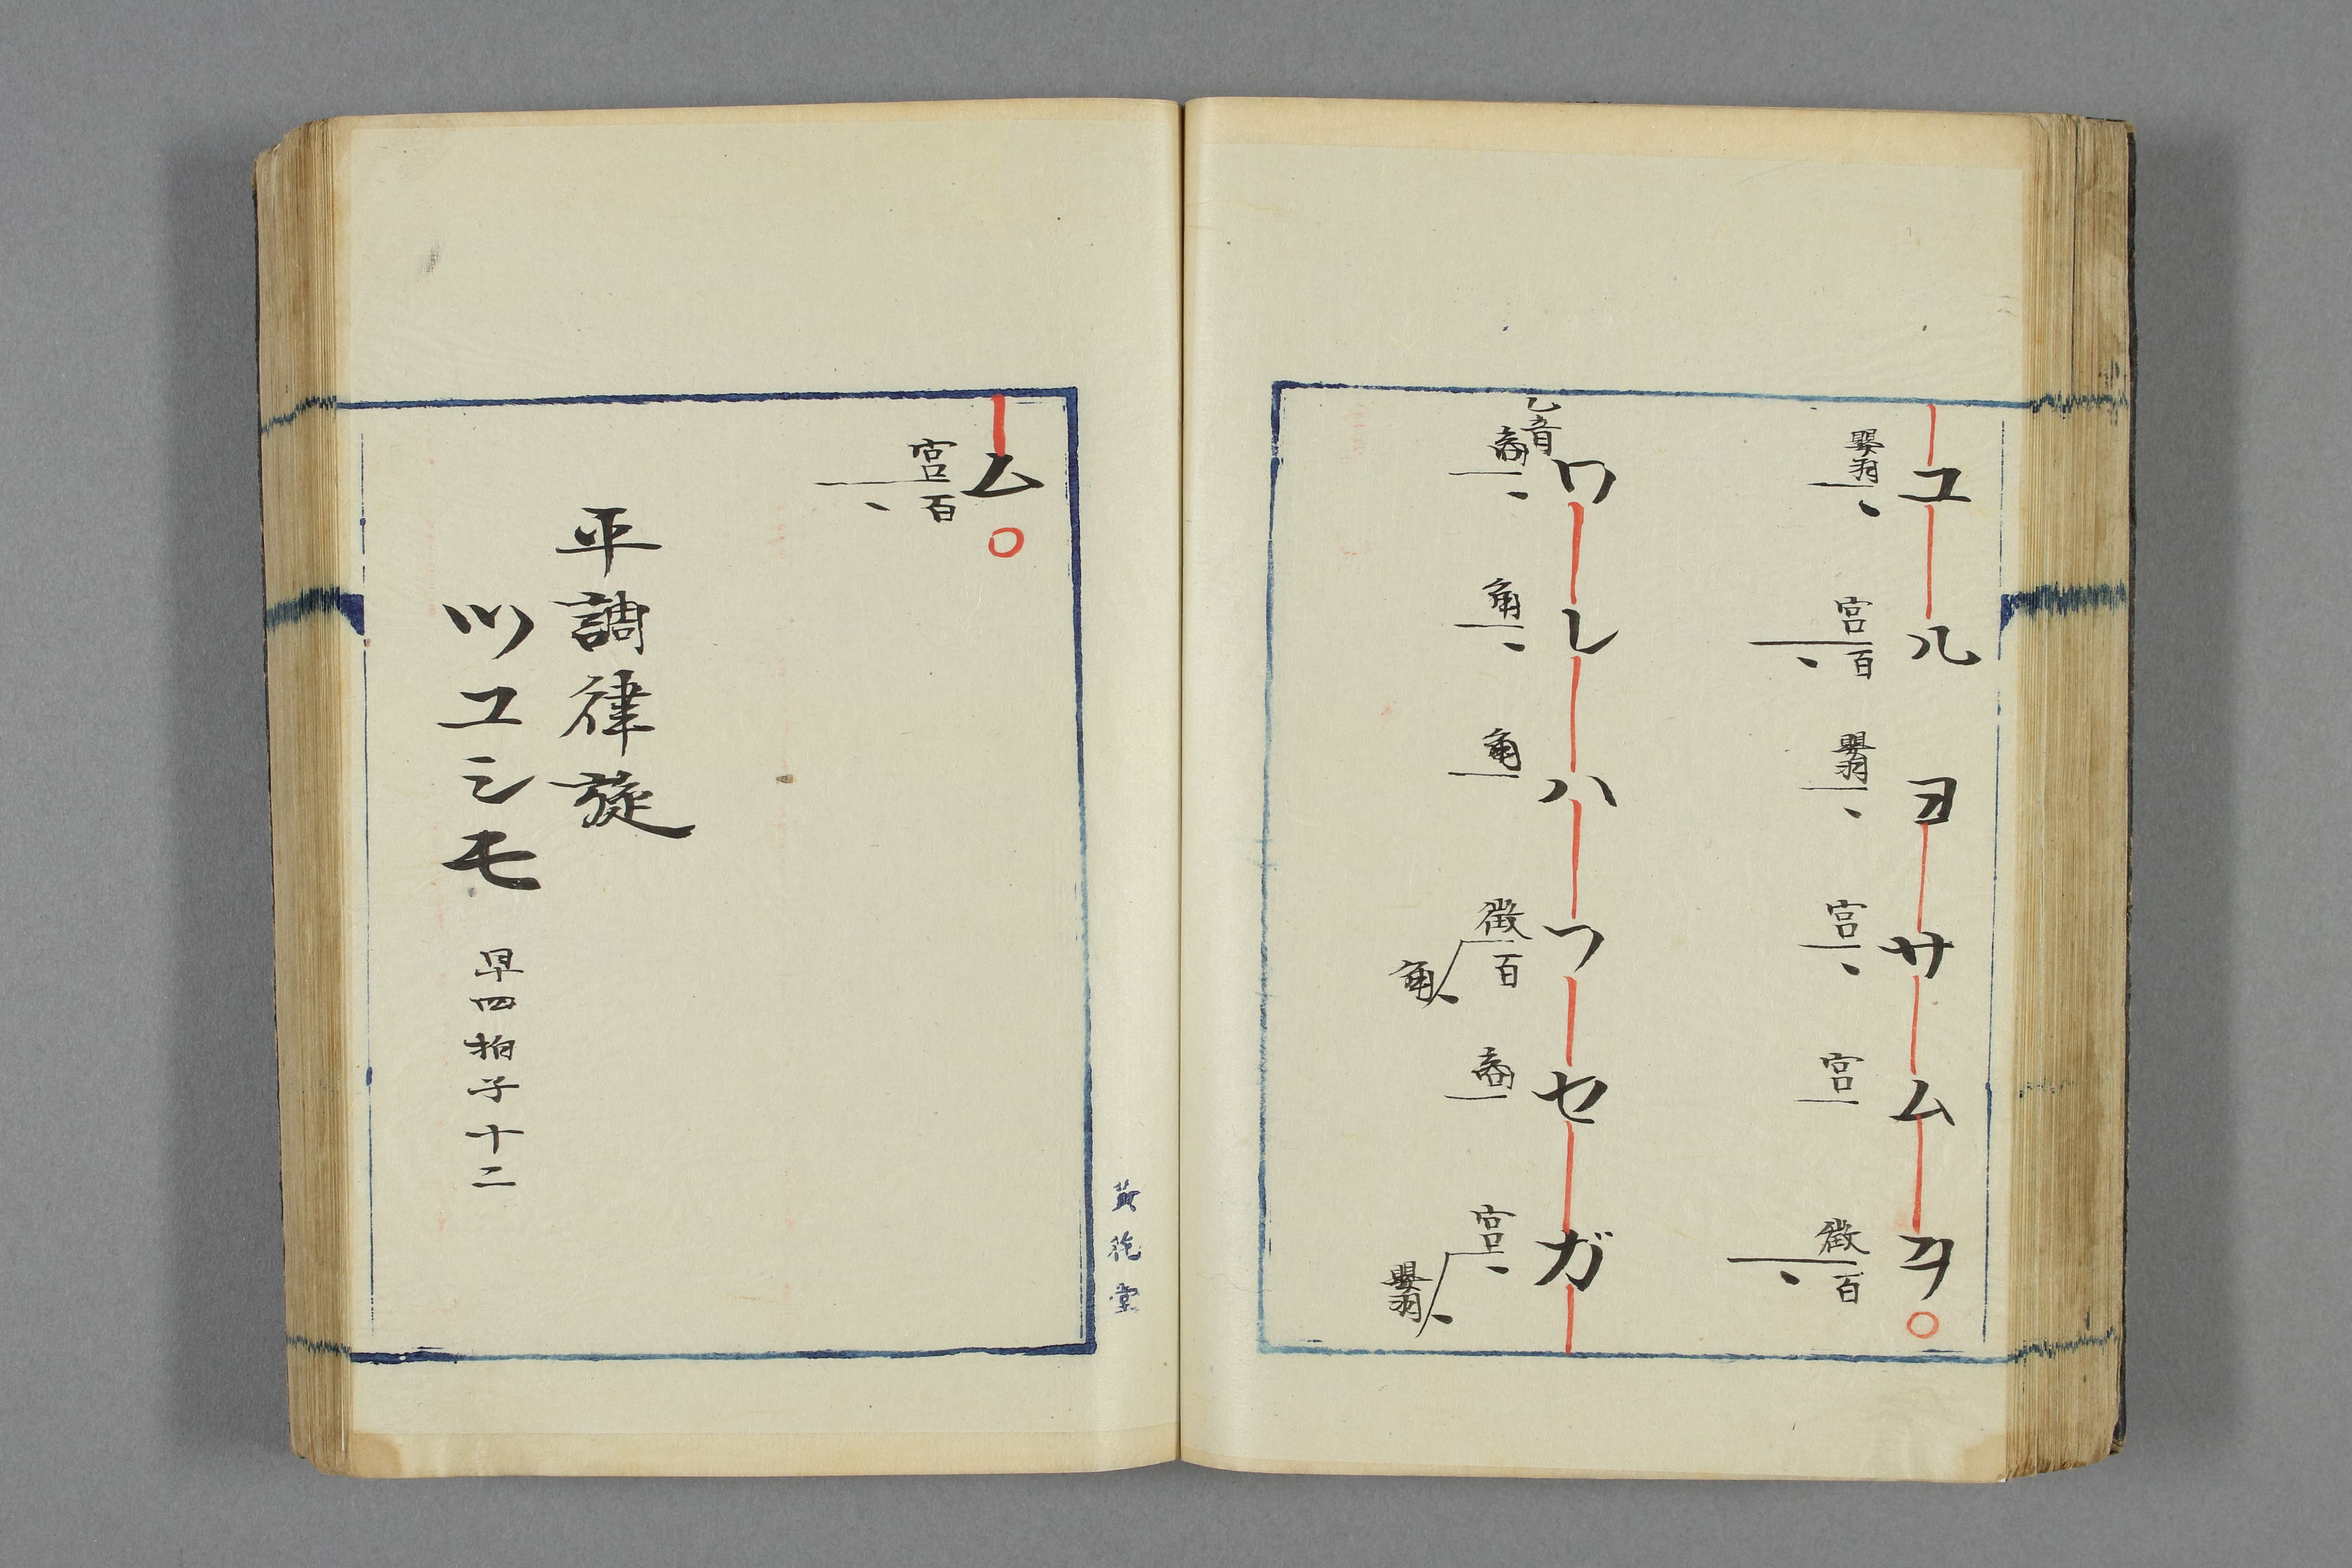 ユルヨサムヲ
嬰羽 宮百 嬰羽 宮 宮 徴百
乙音
ワレハフセガ
商 角 角 徴百角 商 宮嬰羽
ム
宮百
平調律旋
ツユシモ 早四拍子十二